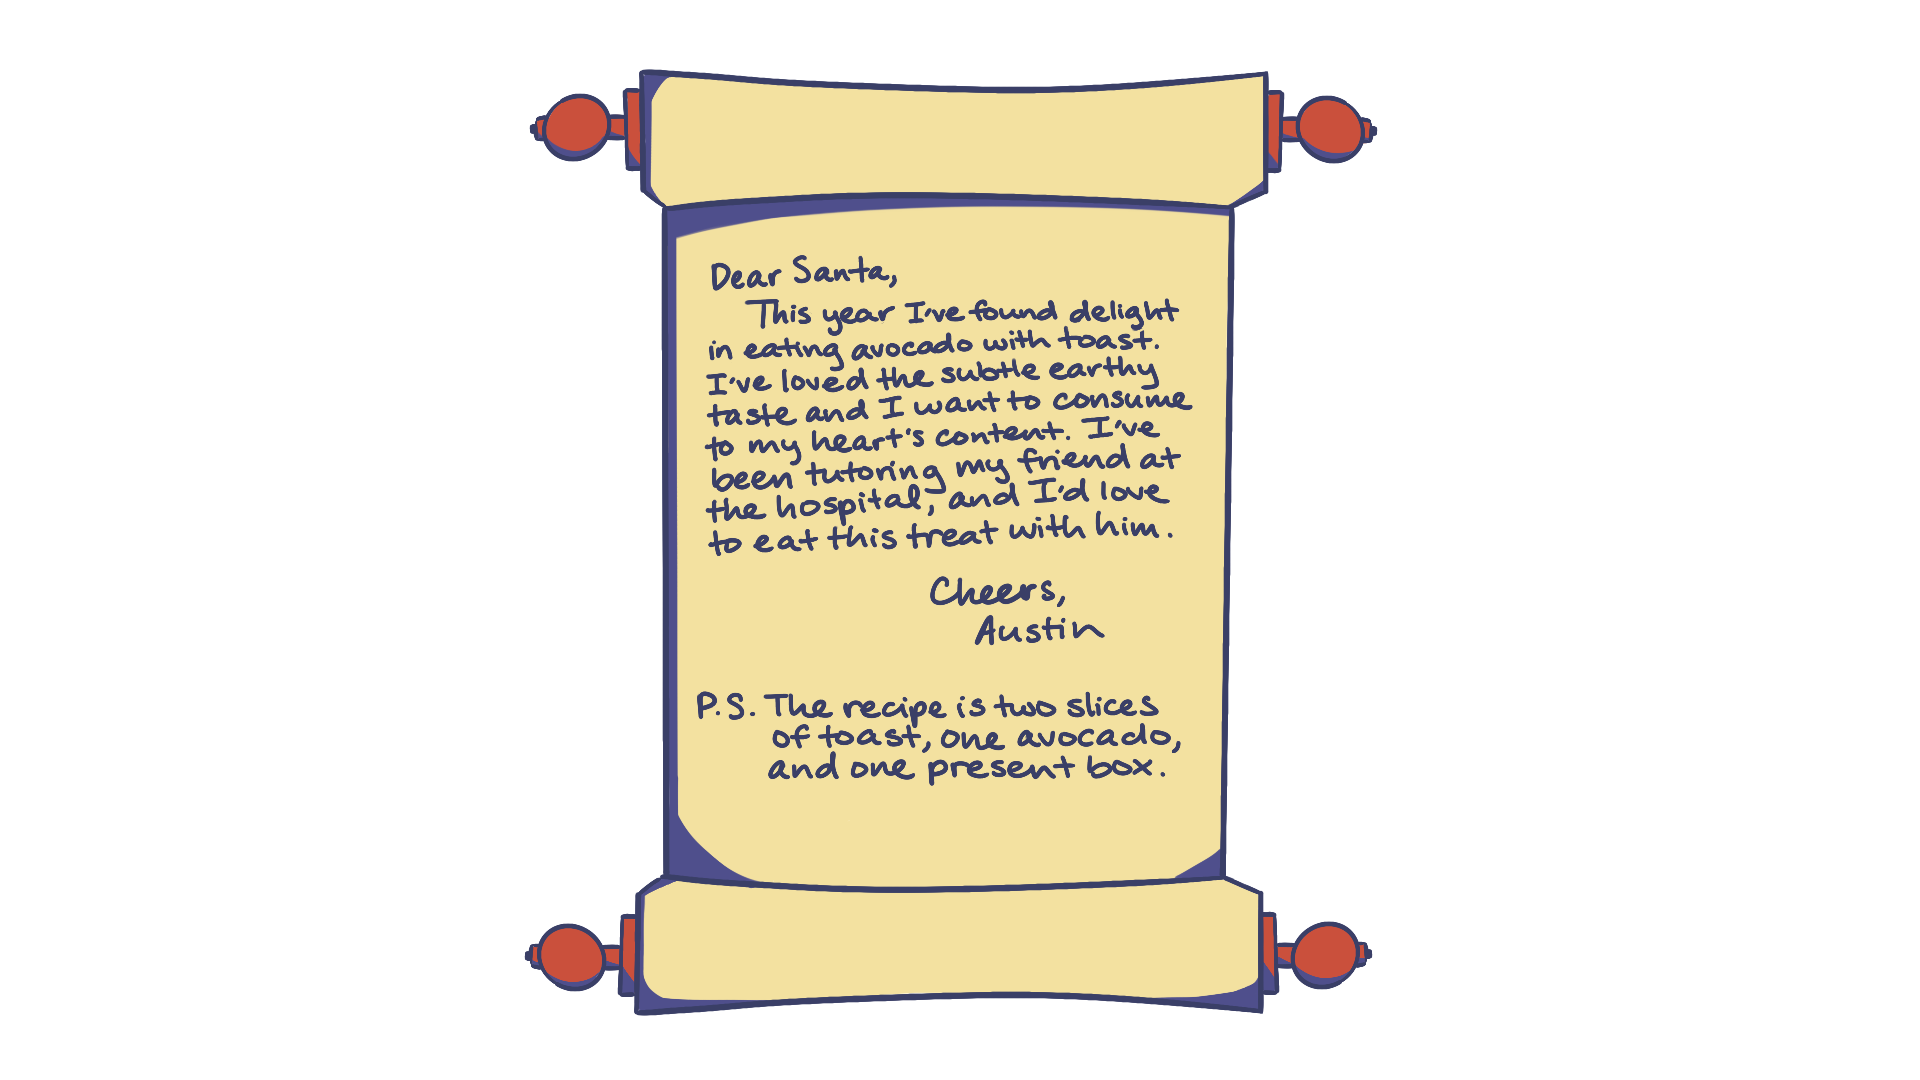 Dear Santa,
This year I've found delight
in eating avocado with toast.
I've loved the subtle earthy
taste and I want to consume
to my heart's content. I've
been tutoring my friend at
the hospital, and I'd love
to eat this treat with him.
Cheers,
Austin
P.S. The recipe is two slices
of toast, one avocado,
and one present box.